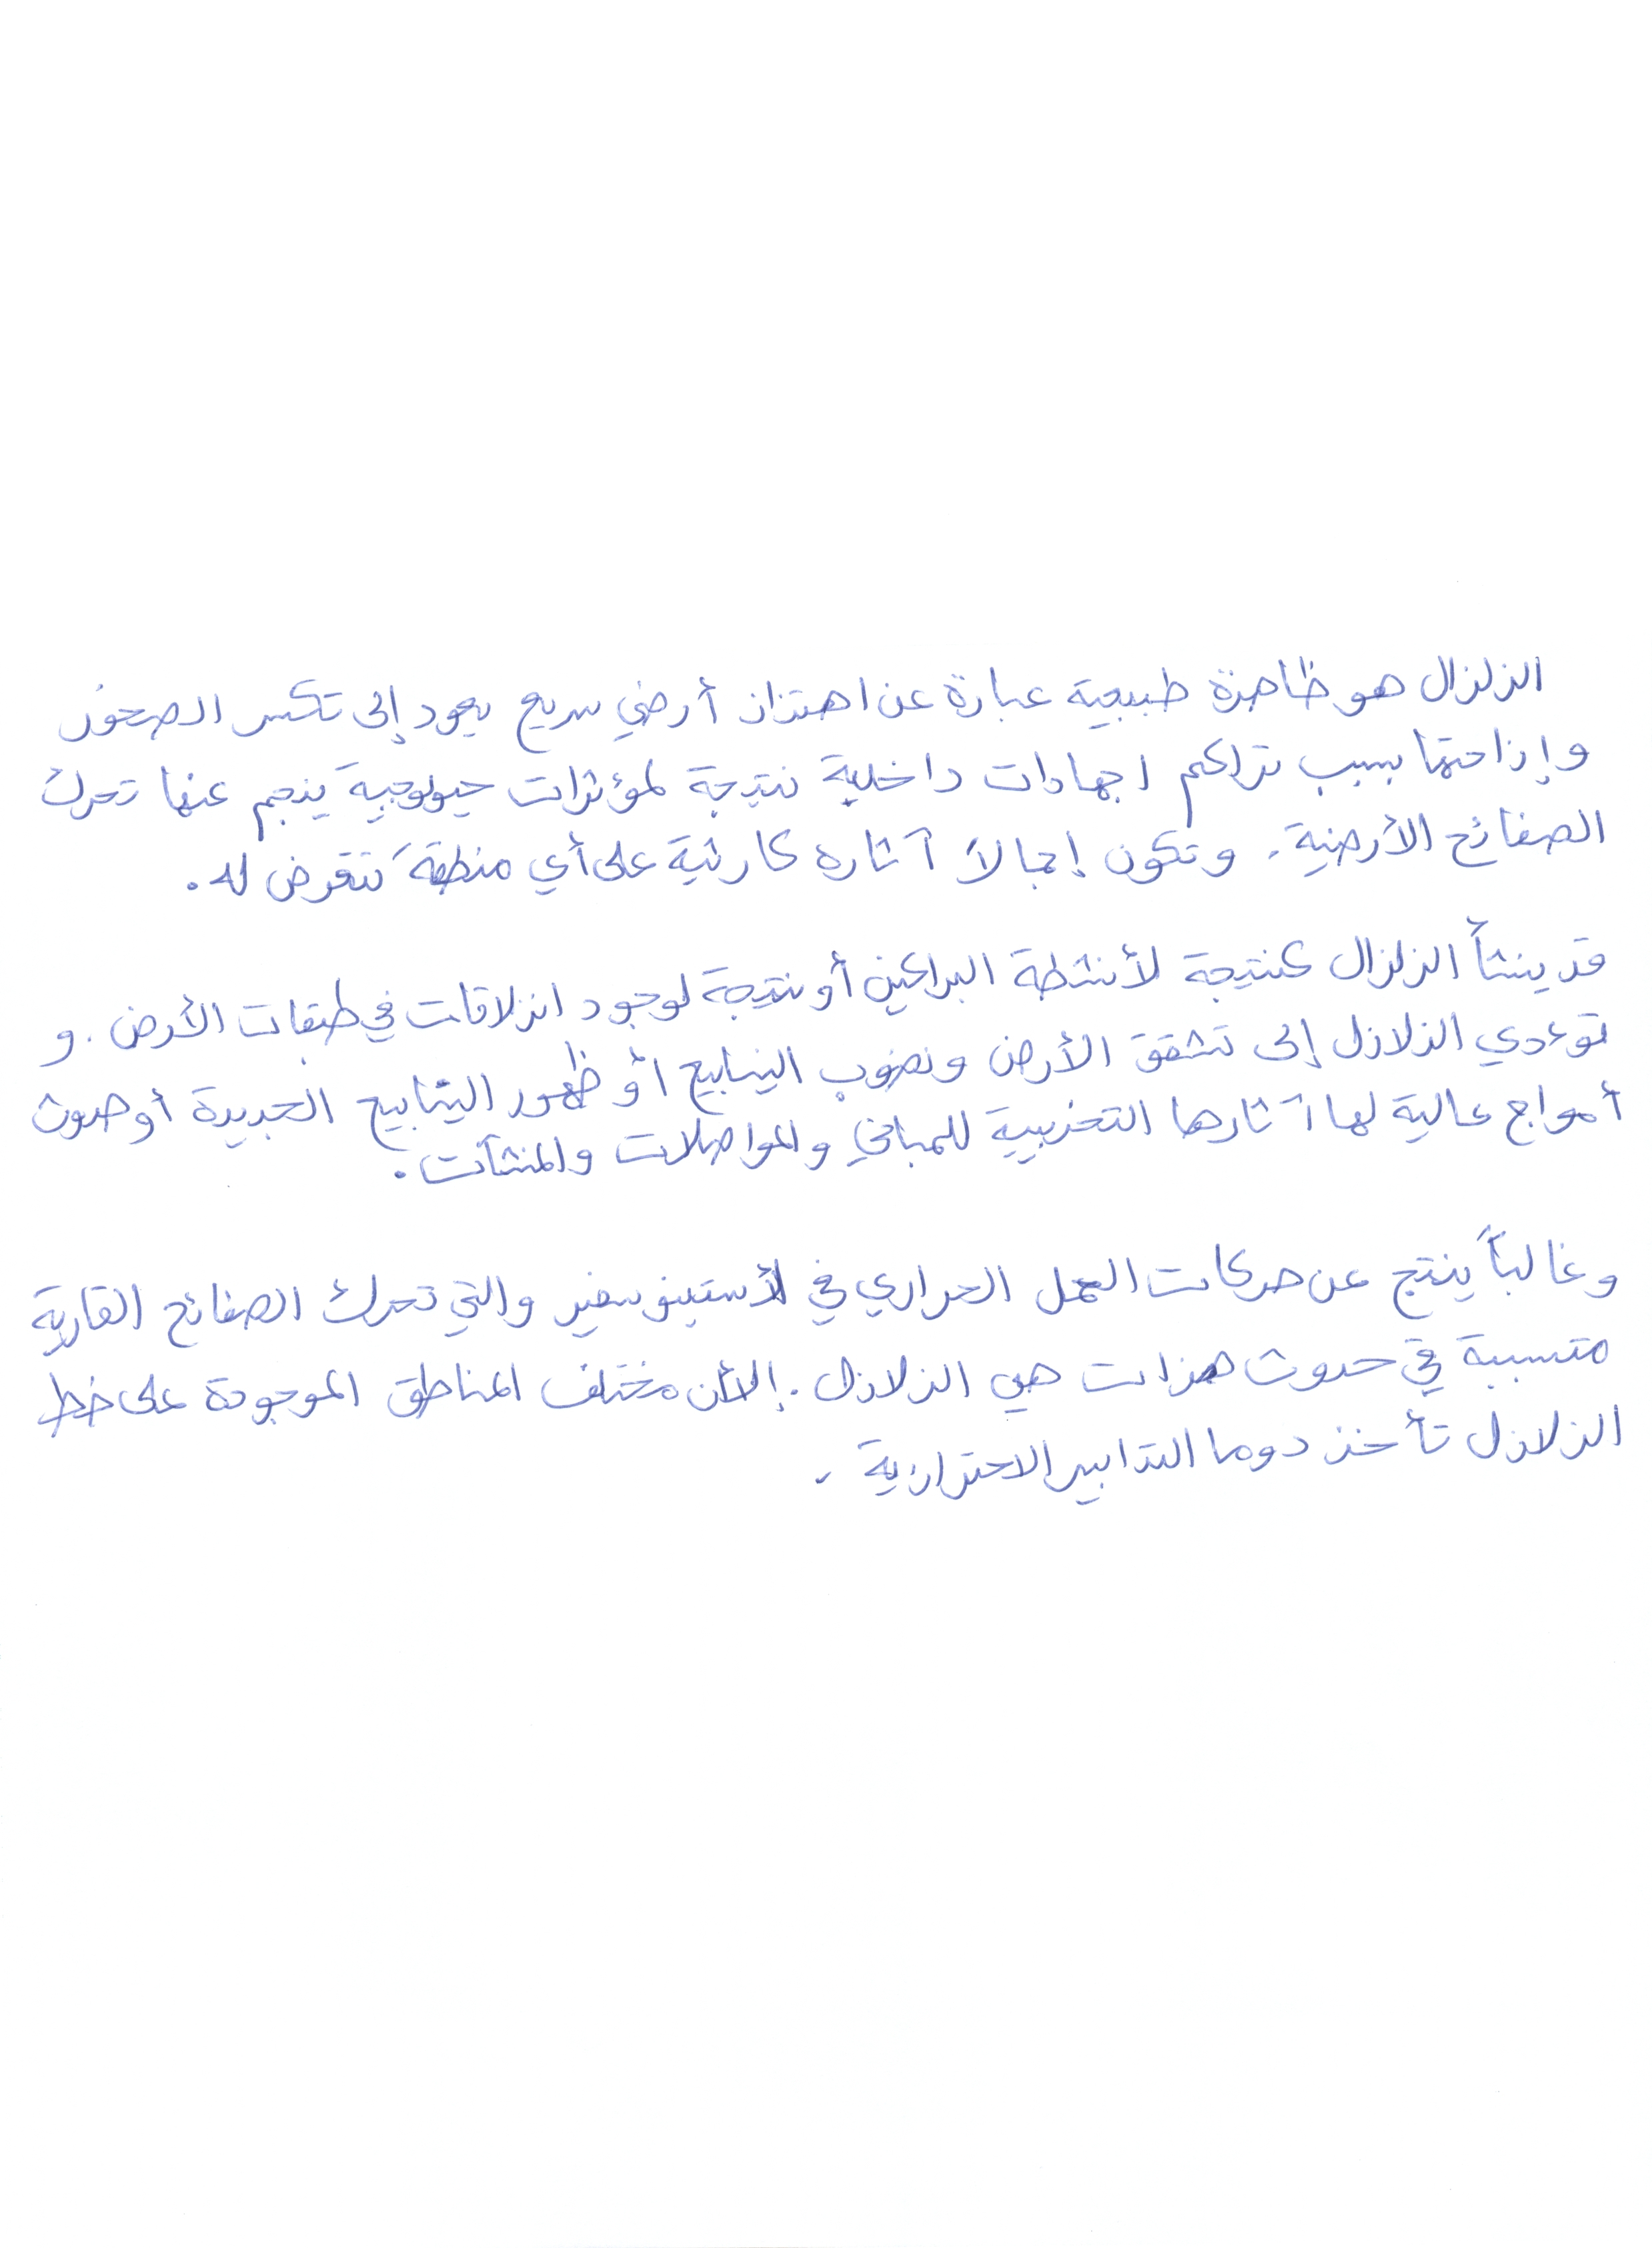 الزلزال هو ظاهرة طبيعية عبارة عن اهتزاز أرضي سريع يعود إلى تكسر الصخور
وإزاحتها بسبب تراكم اجهادات داخلية نتيجة لمؤثرات جيولوجية ينجم عنها تحرك
الصفائح الأرضية. وتكون إجمالا آثاره كارثية على أي منطقة تتعرض له.
قد ينشأ الزلزال كنتيجة لأنشطة البراكين أو نتيجة لوجود انزلاقات في طبقات الأرض. و
توءدي الزلازل إلى تشقق الأرض ونضوب الينابيع أو ظهور الينابيع الجديدة أو حدوث
أمواج عالية لها آثارها التخريبية للمباني والمواصلات والمنشآت.
وغالباً ينتج عن حركات الحمل الحراري في الأستينوسفير والتي تحرك الصفائح القارية
متسببة في حدوث هزات هي الزلازل. إلا أن مختلف المناطق الموجودة على خط
الزلازل تأخذ دوما التدابير الاحترازية.